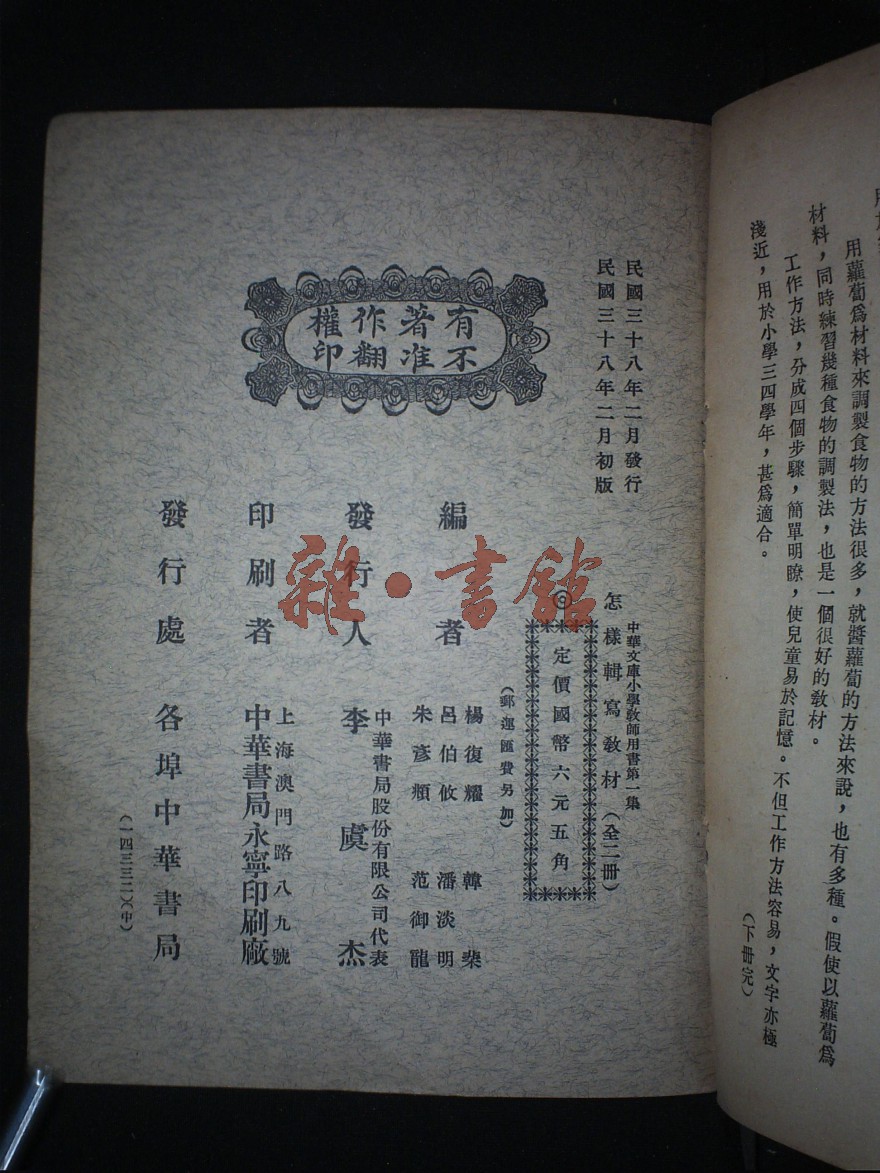 用蘿蔔爲材料來調製食物的方法很多，就醬蘿蔔的方法來說，也有多種。假使以蘿蔔爲
材料，同時練習幾種食物的調製法，也是一個很好的教材。
工作方法，分成四個步驟，簡單明瞭，使兒童易於記憶。不但工作方法容易，文字亦極
淺近，用於小學三四學年，甚爲適合。
（下册完）
民國三十八年二月發行
民國三十八年二月初版
有著作權
不准翻印
中華文庫小學教師用書第一集
怎樣輯寫教材（全二册）
◎
定價國幣六元五角
（郵運匯費另加）
編者
楊復耀 韓棐
呂伯攸 潘淡明
朱彦頫 范御龍
發行人
中華書局股份有限公司代表
李虞杰
印刷者
上海澳門路八九號
中華書局永寧印刷廠
發行處
各埠中華書局
（一四三三二）（中）
雜·書館